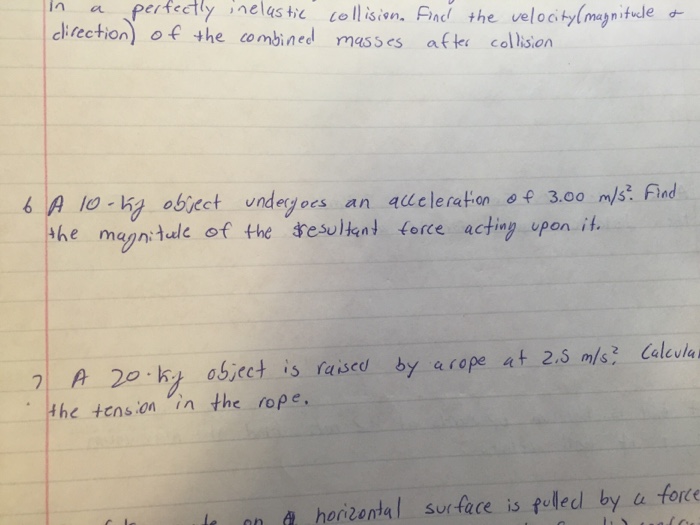 in a perfectly inelastic collision. Find the velocity (magnitude &
direction) of the combined masses after collision
6 A 10-kg object undergoes an acceleration of 3.00 m/s². Find
the magnitude of the resultant force acting upon it.
7. A 20-kg object is raised by a rope at 2.5 m/s². Calcula
the tension in the rope.
on a horizontal surface is pulled by a force